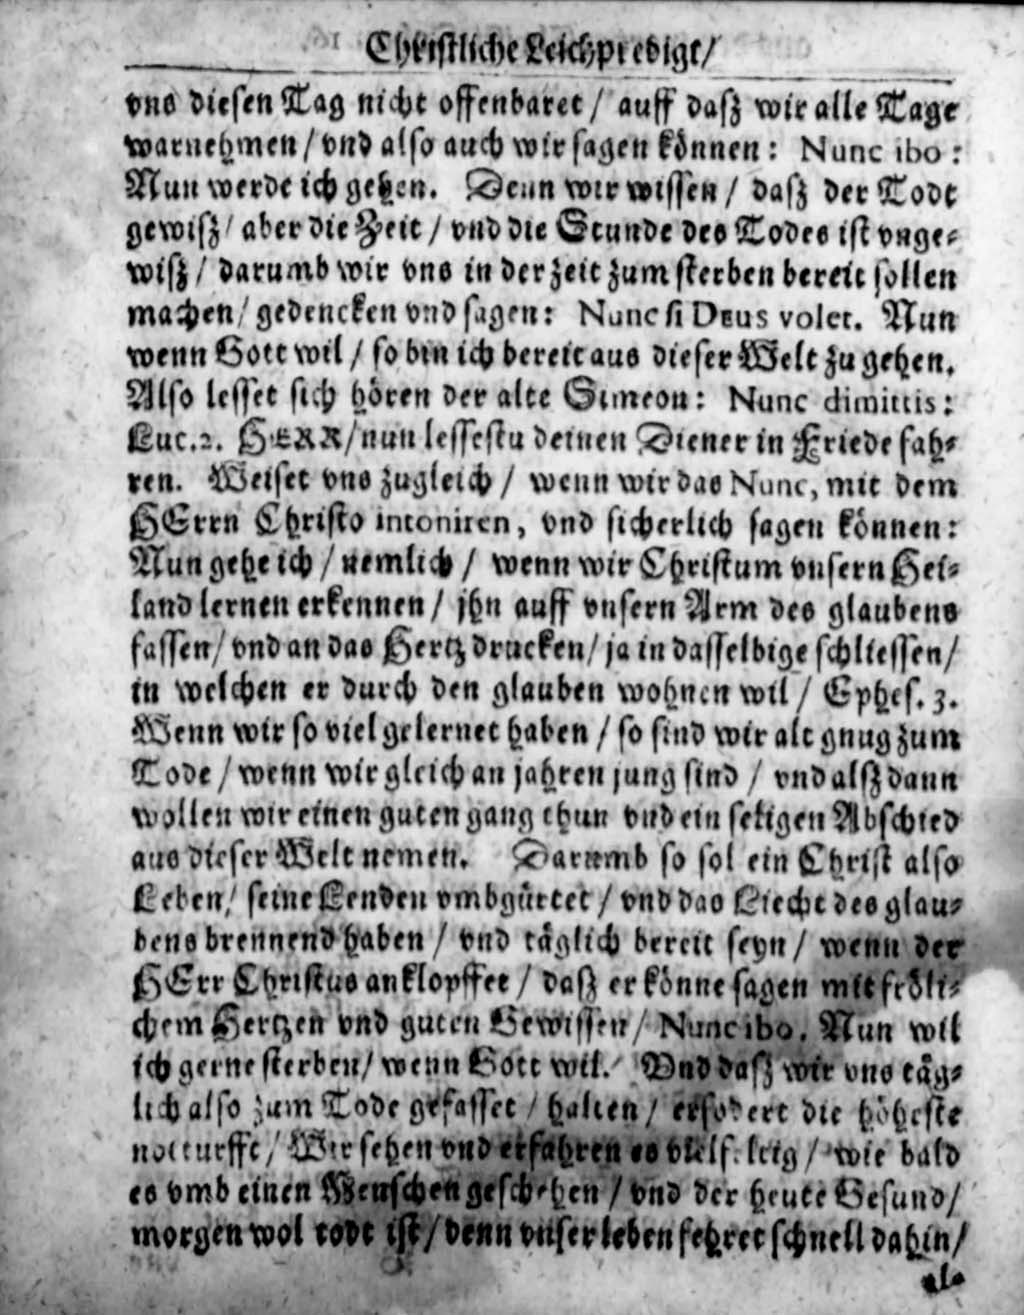 Christliche Leichpredigt/
vns diesen Tag nicht offenbaret / auff dasz wir alle Tage
warnehmen / vnd also auch wir sagen können: Nunc ibo:
Nun werde ich gehen. Denn wir wissen / dasz der Todt
gewisz / aber die Zeit / vnd die Stunde des Todes ist vnge-
wisz / darumb wir vns in der zeit zum sterben bereit sollen
machen / gedencken vnd sagen: Nunc si Deus volet. Nun
wenn Gott wil / so bin ich bereit aus dieser Welt zu gehen.
Also lesset sich hören der alte Simeon: Nunc dimittis:
Luc.2. HERR/nun lessestu deinen Diener in Friede fah-
ren. Weiset vns zugleich / wenn wir das Nunc, mit dem
HErrn Christo intoniren, vnd sicherlich sagen können:
Nun gehe ich / nemlich / wenn wir Christum vnsern Hei-
land lernen erkennen / jhn auff vnsern Arm des glaubens
fassen/ vnd an das Hertz drucken/ ja in dasselbige schliessen/
in welchen er durch den glauben wohnen wil / Ephes. 3.
Wenn wir so viel gelernet haben / so sind wir alt gnug zum
Tode / wenn wir gleich an jahren jung sind / vnd alsz dann
wollen wir einen guten gang thun vnd ein seligen Abschied
aus dieser Welt nemen. Darumb so sol ein Christ also
Leben/ seine Lenden vmbgürtet / vnd das Liecht des glau-
bens brennend haben / vnd täglich bereit seyn / wenn der
HErr Christus anklopffet / dasz er könne sagen mit fröli-
chem Hertzen vnd guten Gewissen/ Nunc ibo. Nun wil
ich gerne sterben/ wenn Gott wil. Vnd dasz wir vns täg-
lich also zum Tode gefasset / halten / erfodert die höheste
notturfft / Wir sehen vnd erfahren es / wie bald
es vmb einen Menschen geschehen / vnd der heute Gesund/
morgen wol todt ist / denn vnser leben fehret schnell dahin/
als